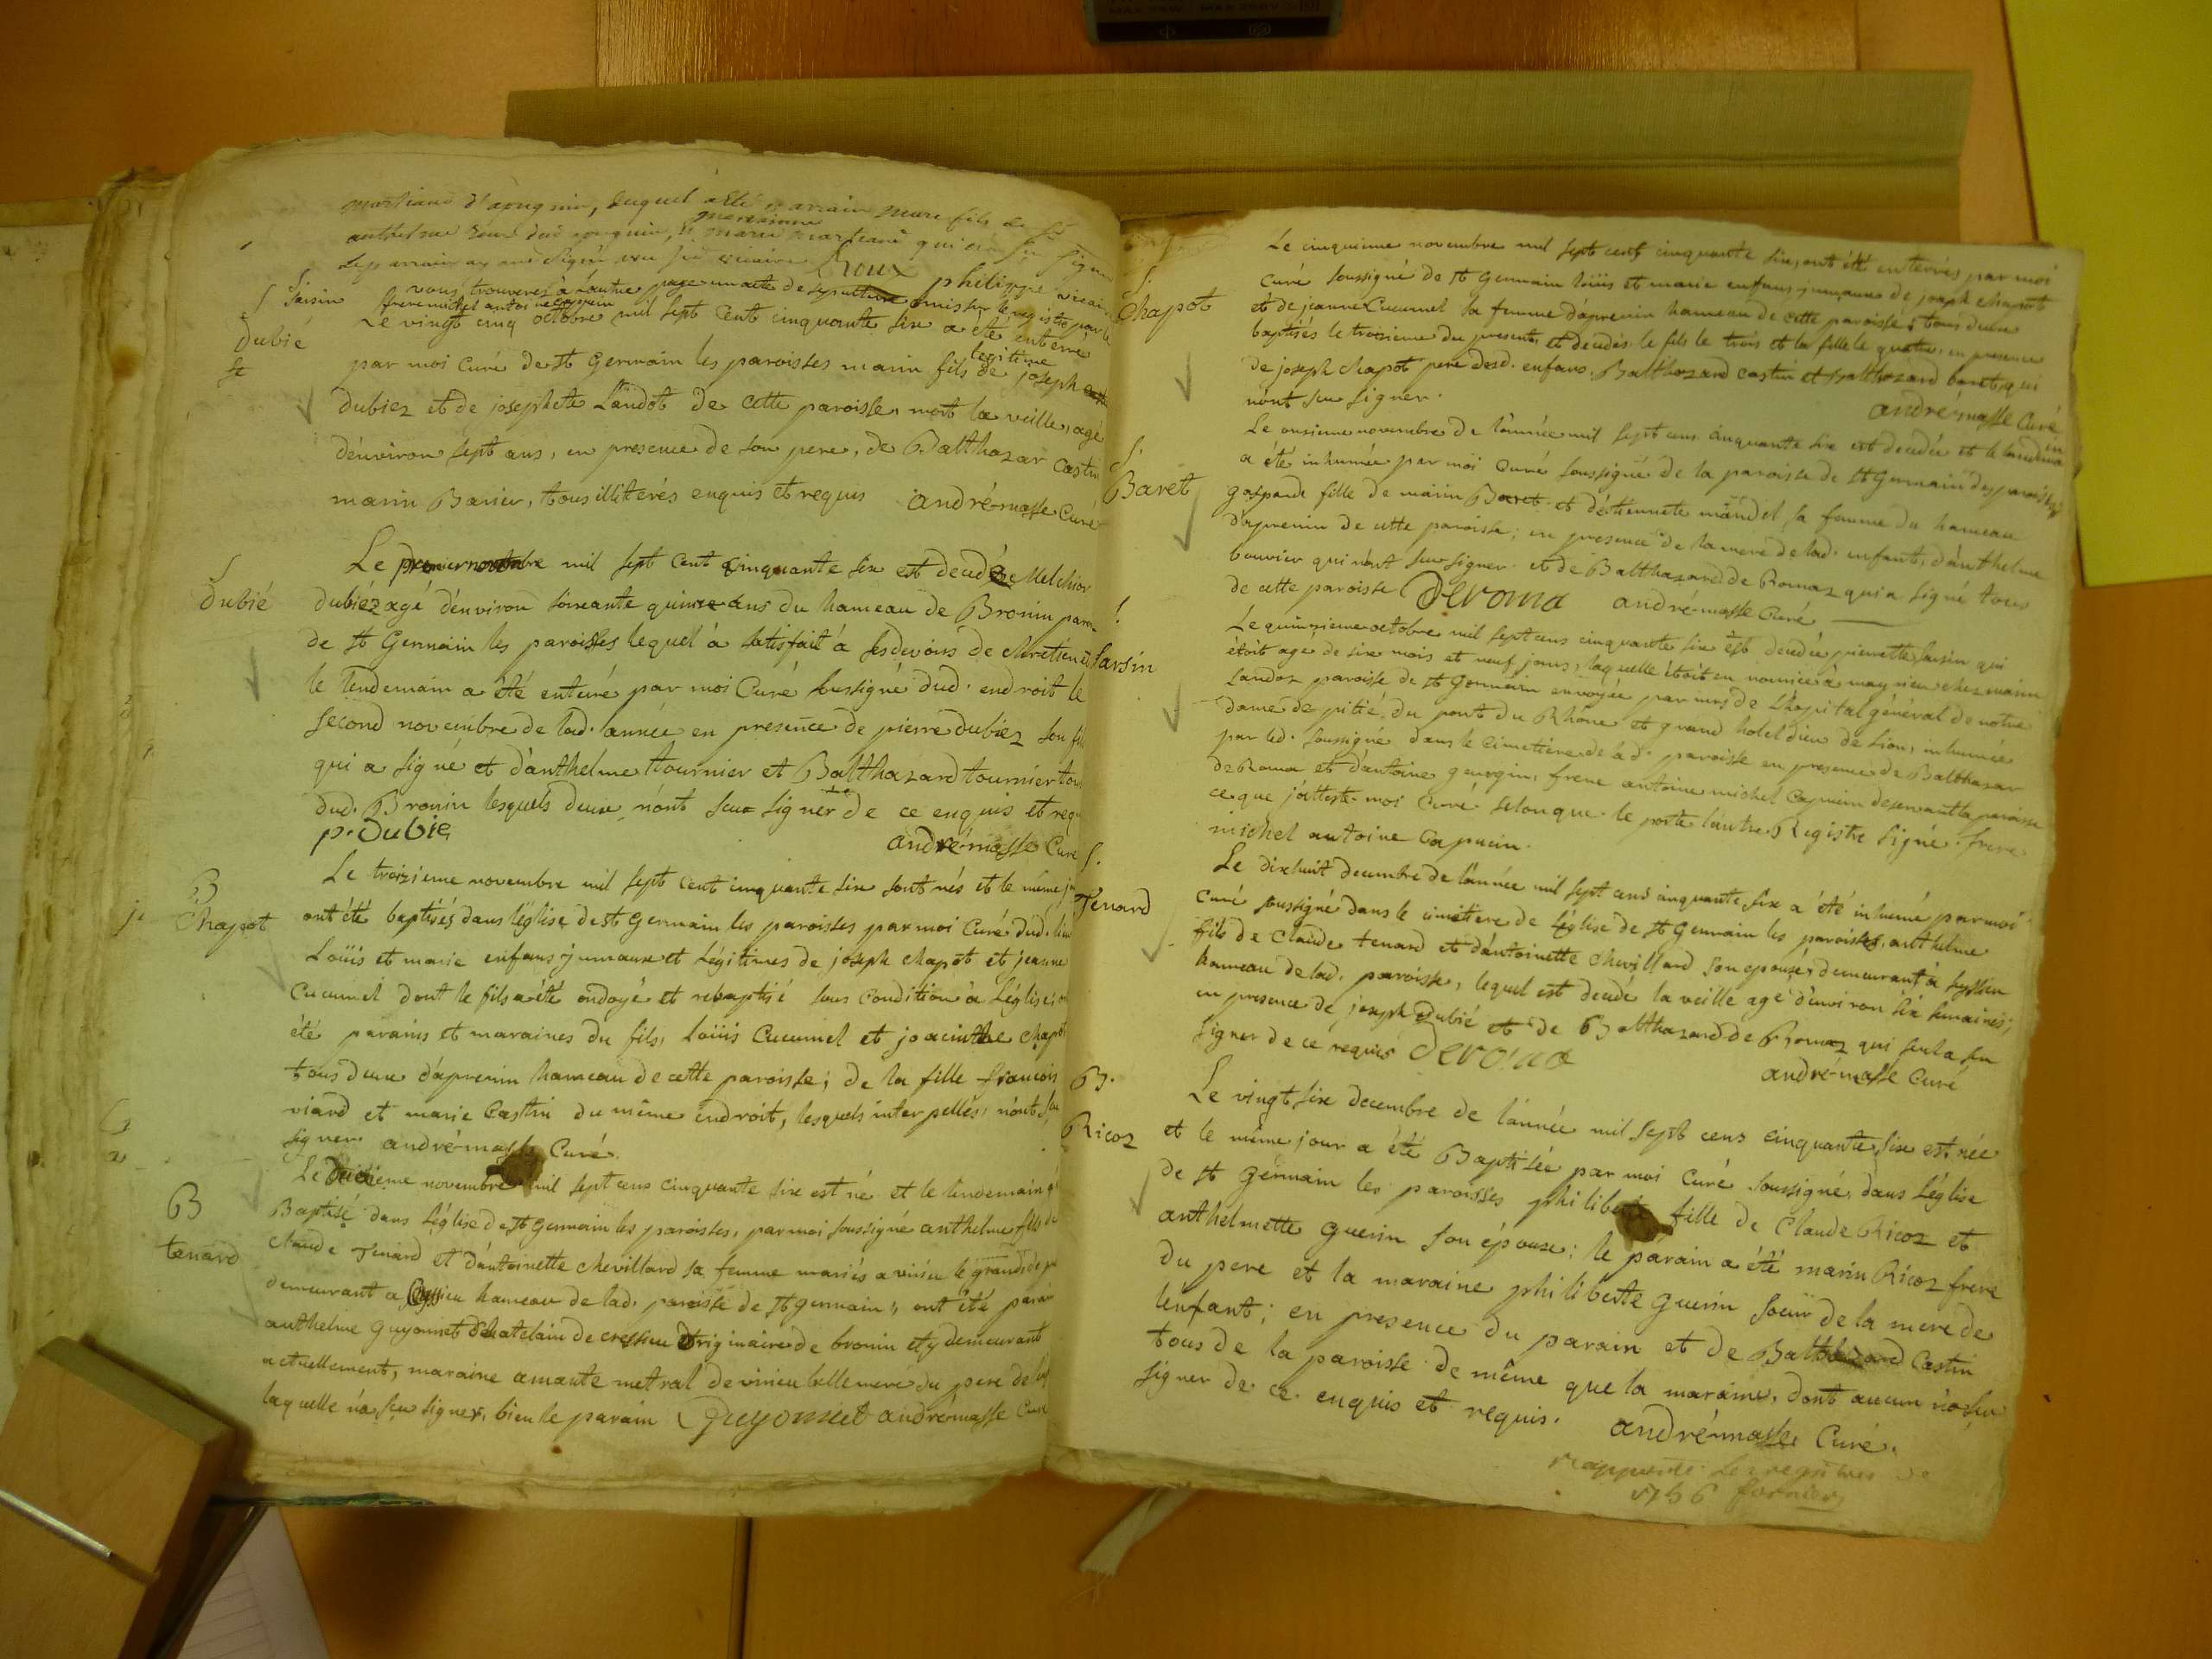 marrain
authelme qui
Roux philippe vicaire
vous trouveres a l'autre page un acte de sepulture omis sur le registre par le
frere michel antoine capucin
S Sarsin
Le vingt cinq octobre mil sept cent cinquante six a été enterré
Dubié
par moi Curé de St Germain les paroisses marin fils legitime de joseph
Dubiez et de josephete Landot de cette paroisse, mort la veille, agé
d'environ sept ans, en presence de son pere, de Balthazar Castin
marin Banier, tous illiterés enquis et requis andré-masse Curé
Le premier novembre mil sept cent cinquante six est decedé Melchior
S
Dubié
dubiez agé d'environ soixante quinze ans du hameau de Bronin
de St Germain les paroisses lequel a satisfait a ses devoirs de chrettien et
le lendemain a été enterré par moi Curé soussigné dud. endroit le
second novembre de lad. année en presence de pierre dubiez son fils
qui a signé et d'anthelme tournier et Balthazard tournier tous
dud. Bronin lesquels deux n'ont seu signer de ce enquis et req
p. Dubie
andré-masse Curé
Le troizieme novembre mil sept cent cinquante six sont nés et le même
B
Chapot
ont été baptisés dans l'église de st Germain les paroisses par moi Curé dud. lieu
Loüis et marie enfans jumaux et légitimes de joseph chapot et jeanne
Cucumel dont le fils a été ondoyé et rebaptisé sous condition a l'église; on
été parains et maraines du fils, Loüis Cucumel et joacinthe chapot
tous deux d'aprenin hameau de cette paroisse; de la fille francois
viard et marie Castin du même endroit, lesquels interpellés, n'ont seu
signer. andré-masse Curé.
Le novembre mil sept cens cinquante six est né et le lendemain
B
tenard
Baptisé dans l'église de st Germain les paroisses, par moi soussigné anthelme fils de
Claude Tenard et d'antoinette chevillard sa femme mariés a virieu le grand
demeurant a hameau de lad. paroisse de st germain; ont été parain
anthelme guyonnet Chatelain de cressieu originaire de bronin et y demeurant
actuellement, maraine amante metral de virieu belle mere du pere de
laquelle n'a seu signer, bien le parain Guyonnet andré-masse Curé
Le cinquieme novembre mil sept cent cinquante six, ont été enterrés par moi
S.
Chapot
Curé soussigné de st Germain loüis et marie enfans jumaux de joseph chapot
et de jeanne Cucumel sa femme d'aprenin hameau de cette paroisse; tous deux
baptisés le troisieme du present, et decedés le fils le trois et la fille le quatre; en presence
de joseph chapot pere desd. enfans, Balthazard castin et Balthazard baret, qui
n'ont seu signer.
andré-masse Curé
S.
Baret
Le onzieme novembre de l'année mil sept cens cinquante six est decedée et le lendemain
a été inhumée par moi Curé soussigné de la paroisse de st Germain des paroisses
gasparde fille de marin Baret et d'étiennete mandel sa femme du hameau
d'aprenin de cette paroisse; en presence de la mere de lad. enfant, d'anthelme
bouvier qui n'ont seu signer et de Balthazard de Romaz qui a signé tous
de cette paroisse Deroma andré-masse Curé
S
Sarsin
Le quinzieme octobre mil sept cens cinquante six est decedée pierrette Sarsin qui
étoit agé de six mois et neuf jours, laquelle étoit en nourrice à magnieu chez marin
Landoz paroisse de st Germain envoyée par mrs de L'hopital général de notre
dame de pitié du pont du Rhône et grand hotel dieu de Lion, inhumée
par led. soussigné dans le cimetière de lad. paroisse en presence de Balthazar
de Roma et d'antoine gourgin, frere antoine michel Capucin desservant la paroisse
ce que j'atteste moi Curé selon que le porte l'autre Registre signé. frere
michel antoine Capucin.
S.
Tenard
Le dixhuit decembre de l'année mil sept cens cinquante six a été inhumé par moi
curé soussigné dans le cimetiere de l'église de st Germain les paroisses, anthelme
fils de Claude tenard et d'antoinette chevillard son epouse, demeurant a
hameau de lad. paroisse, lequel est decedé la veille agé d'environ six semaines;
en presence de joseph Dubié et de Balthazard de Romaz qui seul a seu
signer de ce requis Deroma
andré-masse Curé
B.
Ricoz
Le vingt six decembre de l'année mil sept cens cinquante six est née
et le même jour a été Baptisée par moi Curé soussigné, dans l'église
de st germain les paroisses philiberte fille de Claude Ricoz et
anthelmette guerin son épouse: le parain a été marin Ricoz frere
du pere et la maraine philiberte guerin soeur de la mere de
l'enfant; en presence du parain et de Balthazard Castin
tous de la paroisse de même que la maraine, dont aucun n'a seu
signer de ce enquis et requis. andré-masse Curé.
1756